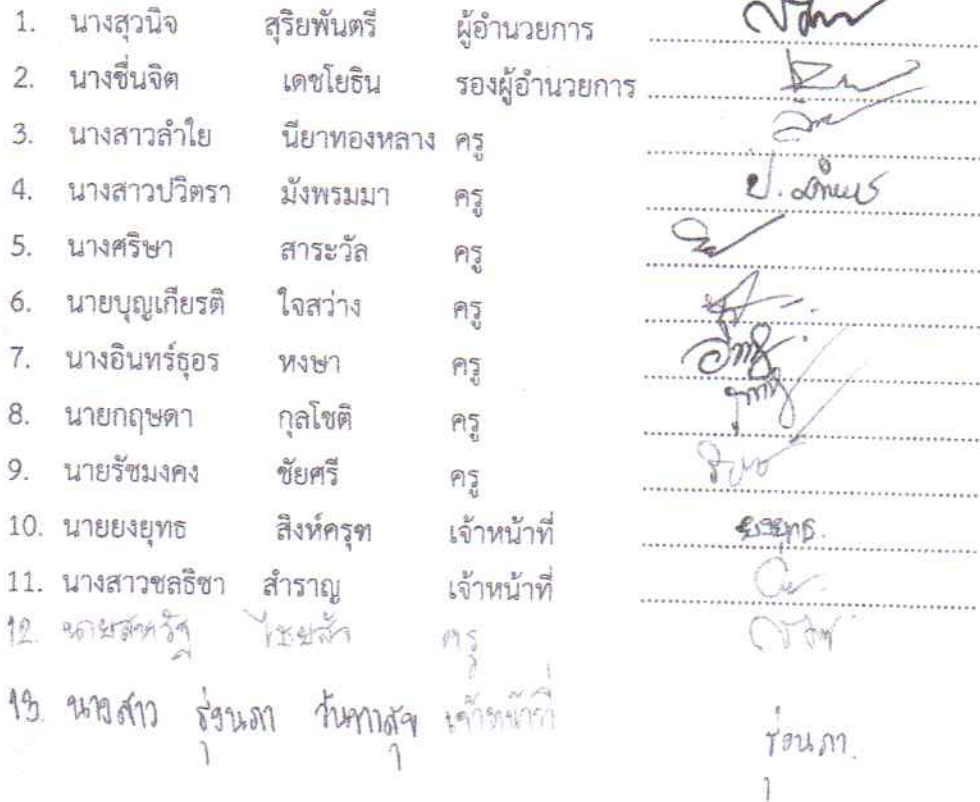 1. นางสุวนิจ สุริยพันตรี ผู้อำนวยการ
2. นางชื่นจิต เดชโยธิน รองผู้อำนวยการ
3. นางสาวลำใย นียาทองหลาง ครู
4. นางสาวปวิตรา มังพรมมา ครู ป.
5. นางศริษา สาระวัล ครู
6. นายบุญเกียรติ ใจสว่าง ครู
7. นางอินทร์ธุอร หงษา ครู
8. นายกฤษดา กุลโชติ ครู
9. นายรัชมงคง ชัยศรี ครู
10. นายยงยุทธ สิงห์ครุฑ เจ้าหน้าที่ ยงยุทธ.
11. นางสาวชลธิชา สำราญ เจ้าหน้าที่
12. ครู
13. นางสาว รุ่งนภา วันทาสุข เจ้าหน้าที่ รุ่งนภา.